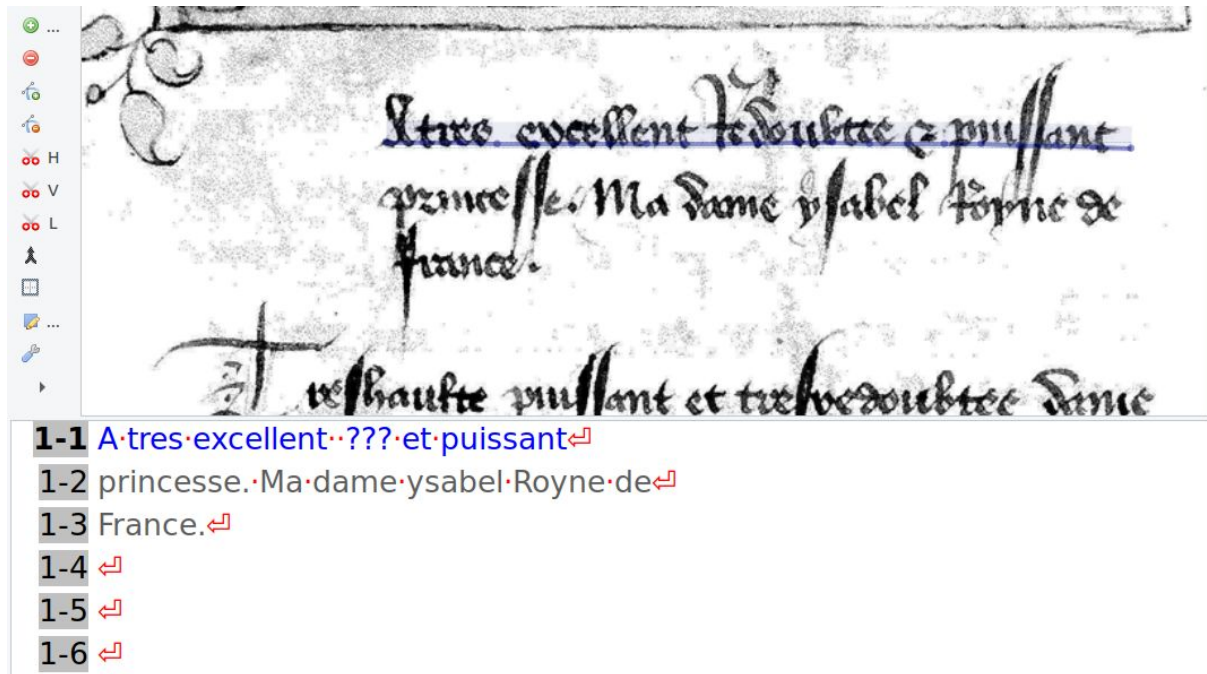 ...
...
H
V
L
...
A tres excellent Redoubtee & puissant
princesse. Ma dame ysabel Royne de
france.
Treshaulte puissant et tresredoubtee dame
1-1 A·tres·excellent··???·et·puissant
1-2 princesse.·Ma·dame·ysabel·Royne·de
1-3 France.
1-4
1-5
1-6